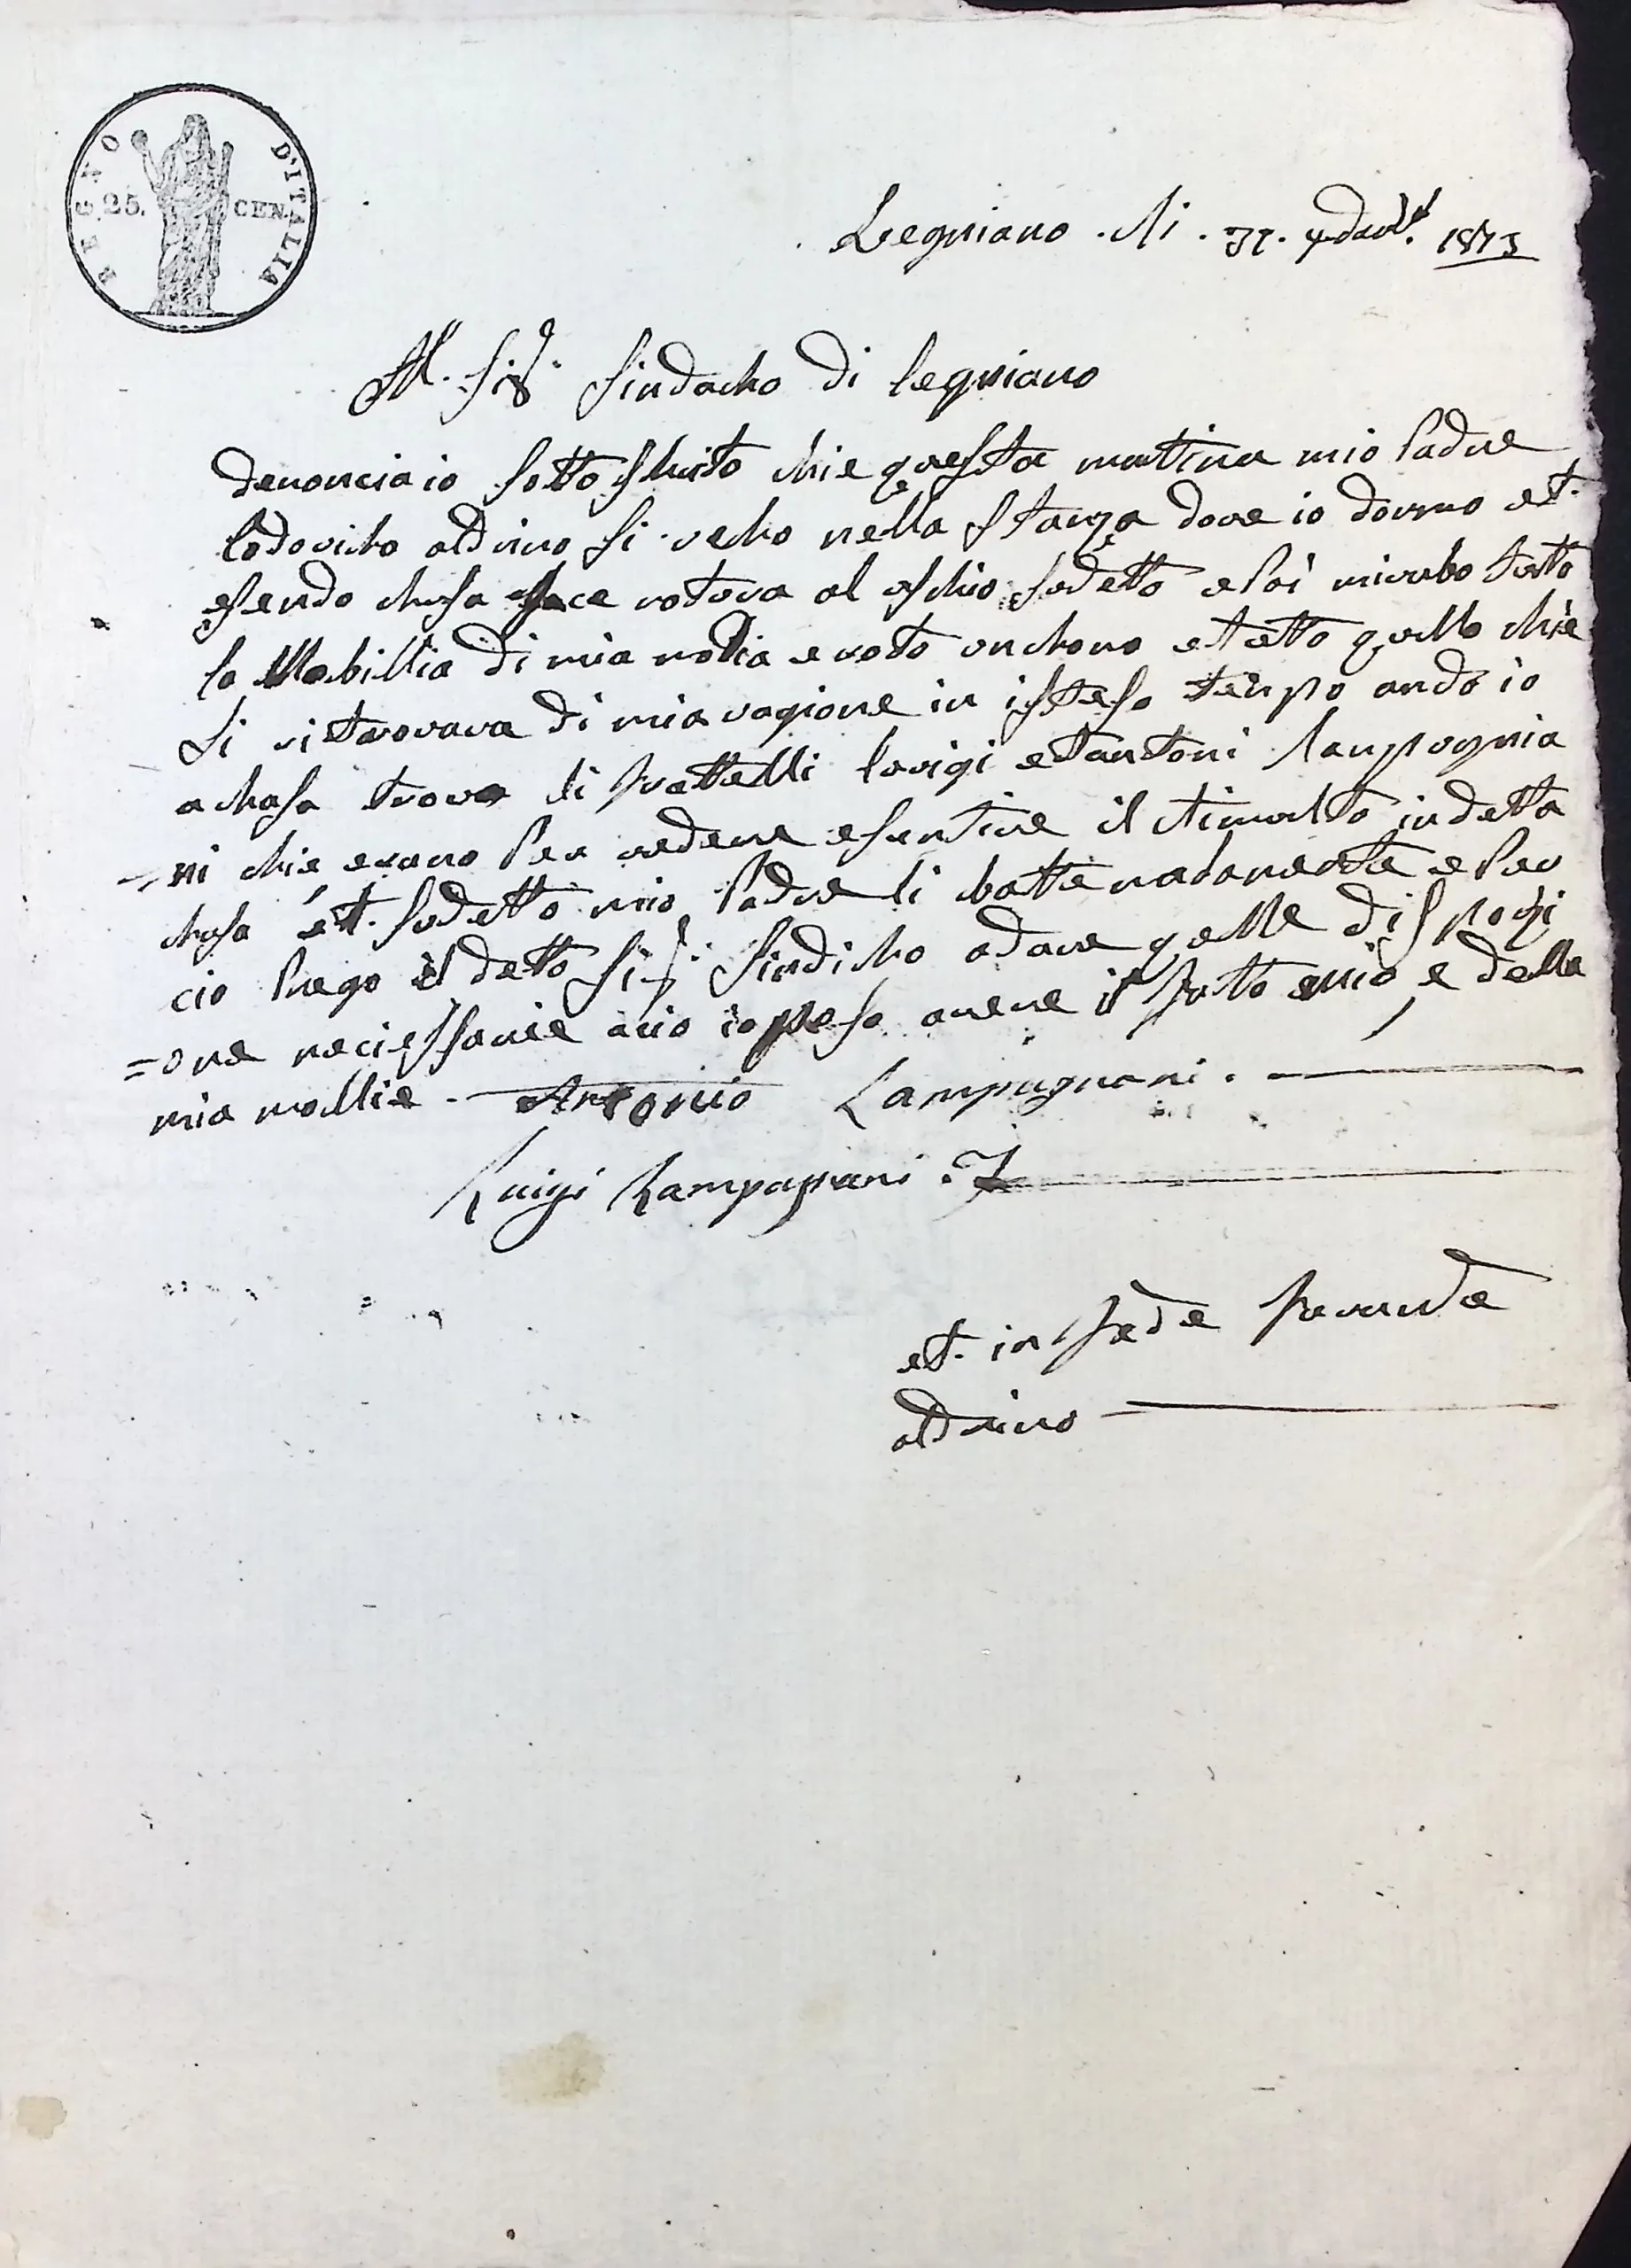 REGNO D'ITALIA
25. CEN.
Legniano . li . 31. 1813
Al. Sig. Sindacho di legniano
denoncia io sotto schrito chie questa matina mio Padre
lodovicho aldrino si recho nella stanza dove io dormo et.
esendo chiusa fece rotura al oschio sodetto e poi mi rubo tutto
la Mobillia di mia molia e roto anchora et tutto quello chie
si ritrovava di mia ragione in isteso tempo ando io
a chasa trova li fratelli luvigi et antoni lanpognia
= ni chie erano Per vedere e sentire il timulto in detta
chasa et. sodetto mio Padre li batte e Per
cio Prego il detto Sig. Sindicho a dare quelle disposizi
= one neciessarie acio io posa avere il fatto mio e della
mia mollie . Antonio Lampugnani .
Luigi Lampugnani .
et. in fede
aldrino